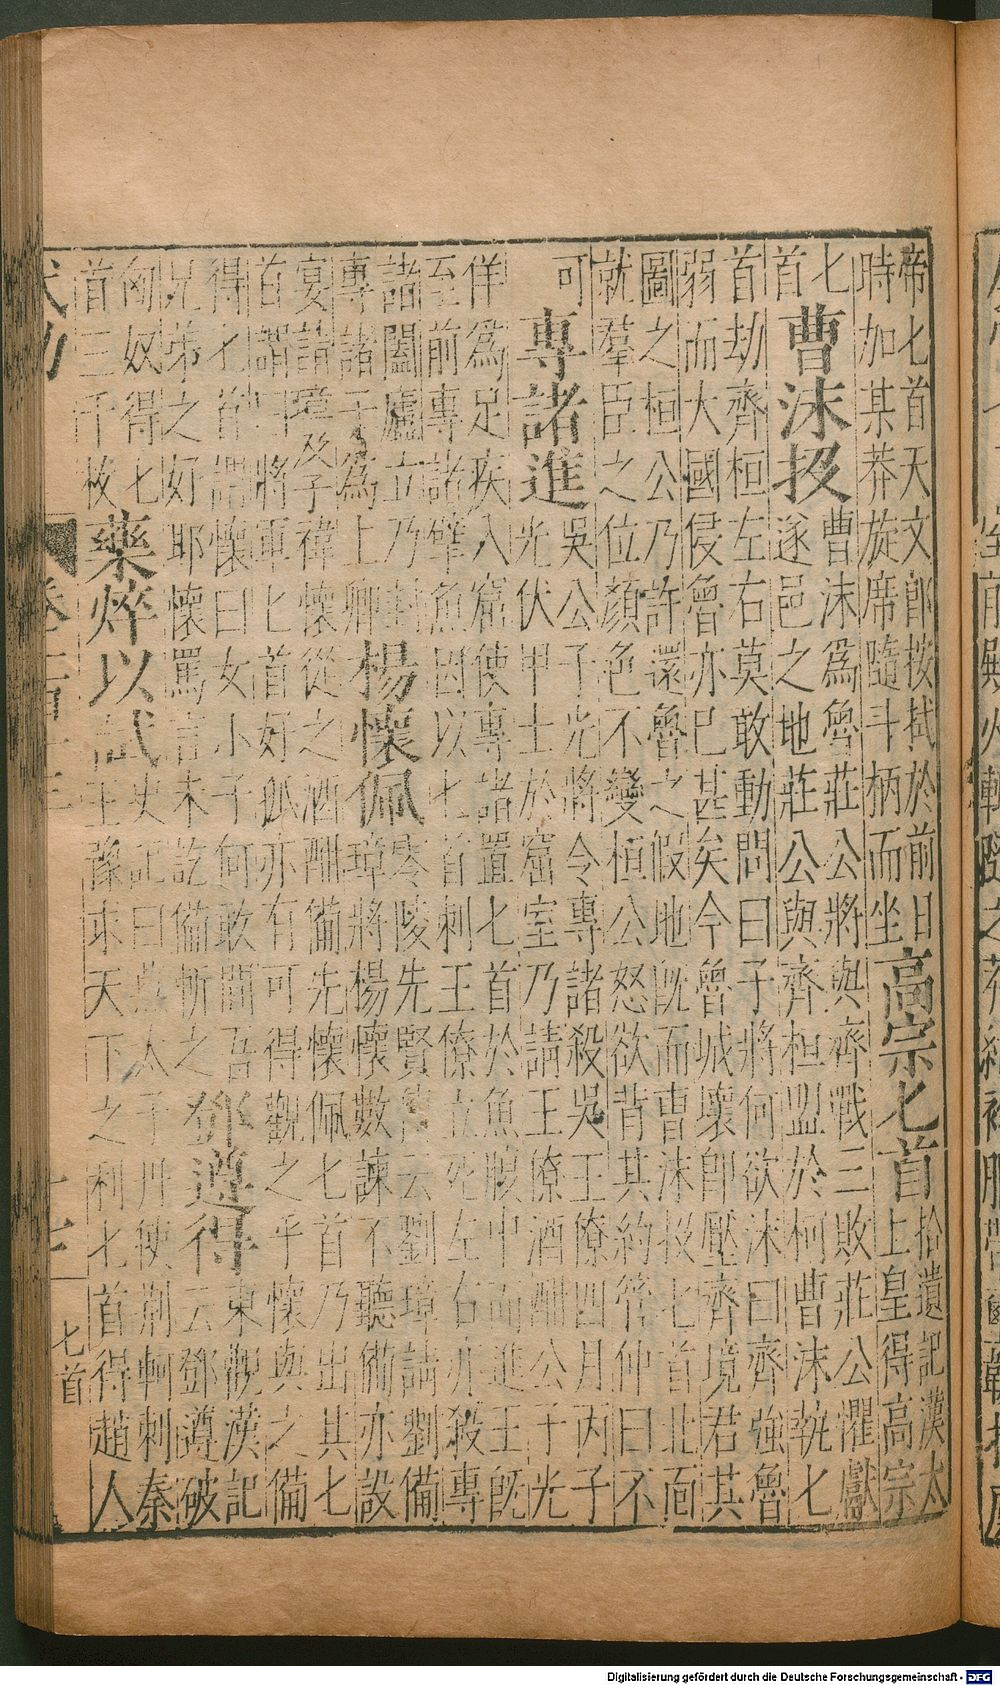 帝匕首天文郎按拭於前日
時加某莽旋席隨斗柄而坐
高宗匕首
拾遺記漢太
上皇得高宗
匕
首
曹沫投
曹沫爲魯莊公將與齊戰三敗莊公懼獻
遂邑之地莊公與齊桓盟於柯曹沫執匕
首劫齊桓左右莫敢動問曰子將何欲沫曰齊強魯
弱而大國侵魯亦已甚矣今魯城壞即壓齊境君其
圖之桓公乃許還魯之假地既而曹沫投匕首北面
就羣臣之位顏色不變桓公怒欲背其約管仲曰不
可
專諸進
吳公子光將令專諸殺吳王僚四月丙子
光伏甲士於窟室乃請王僚酒酣公子光
佯爲足疾入窟使專諸置匕首於魚腹中而進王既
至前專諸擘魚因以匕首刺王僚立死左右亦殺專
諸闔廬立乃封
專諸子爲上卿
楊懷佩
零陵先賢云劉璋請劉備
璋將楊懷數諫不聽備亦設
宴請璋及子禕懷從之酒酣備先懷佩匕首乃出其匕
首謂曰將軍匕首好孤亦有可得觀之乎懷與之備
得匕首謂懷曰女小子何敢間吾
兄弟之好耶懷罵言未訖備斬之
鄧遵得
東觀漢記
云鄧遵破
匈奴得匕
首三千枚
藥焠以試
史記曰燕太子丹使荊軻刺秦
王豫求天下之利匕首得趙人
匕首